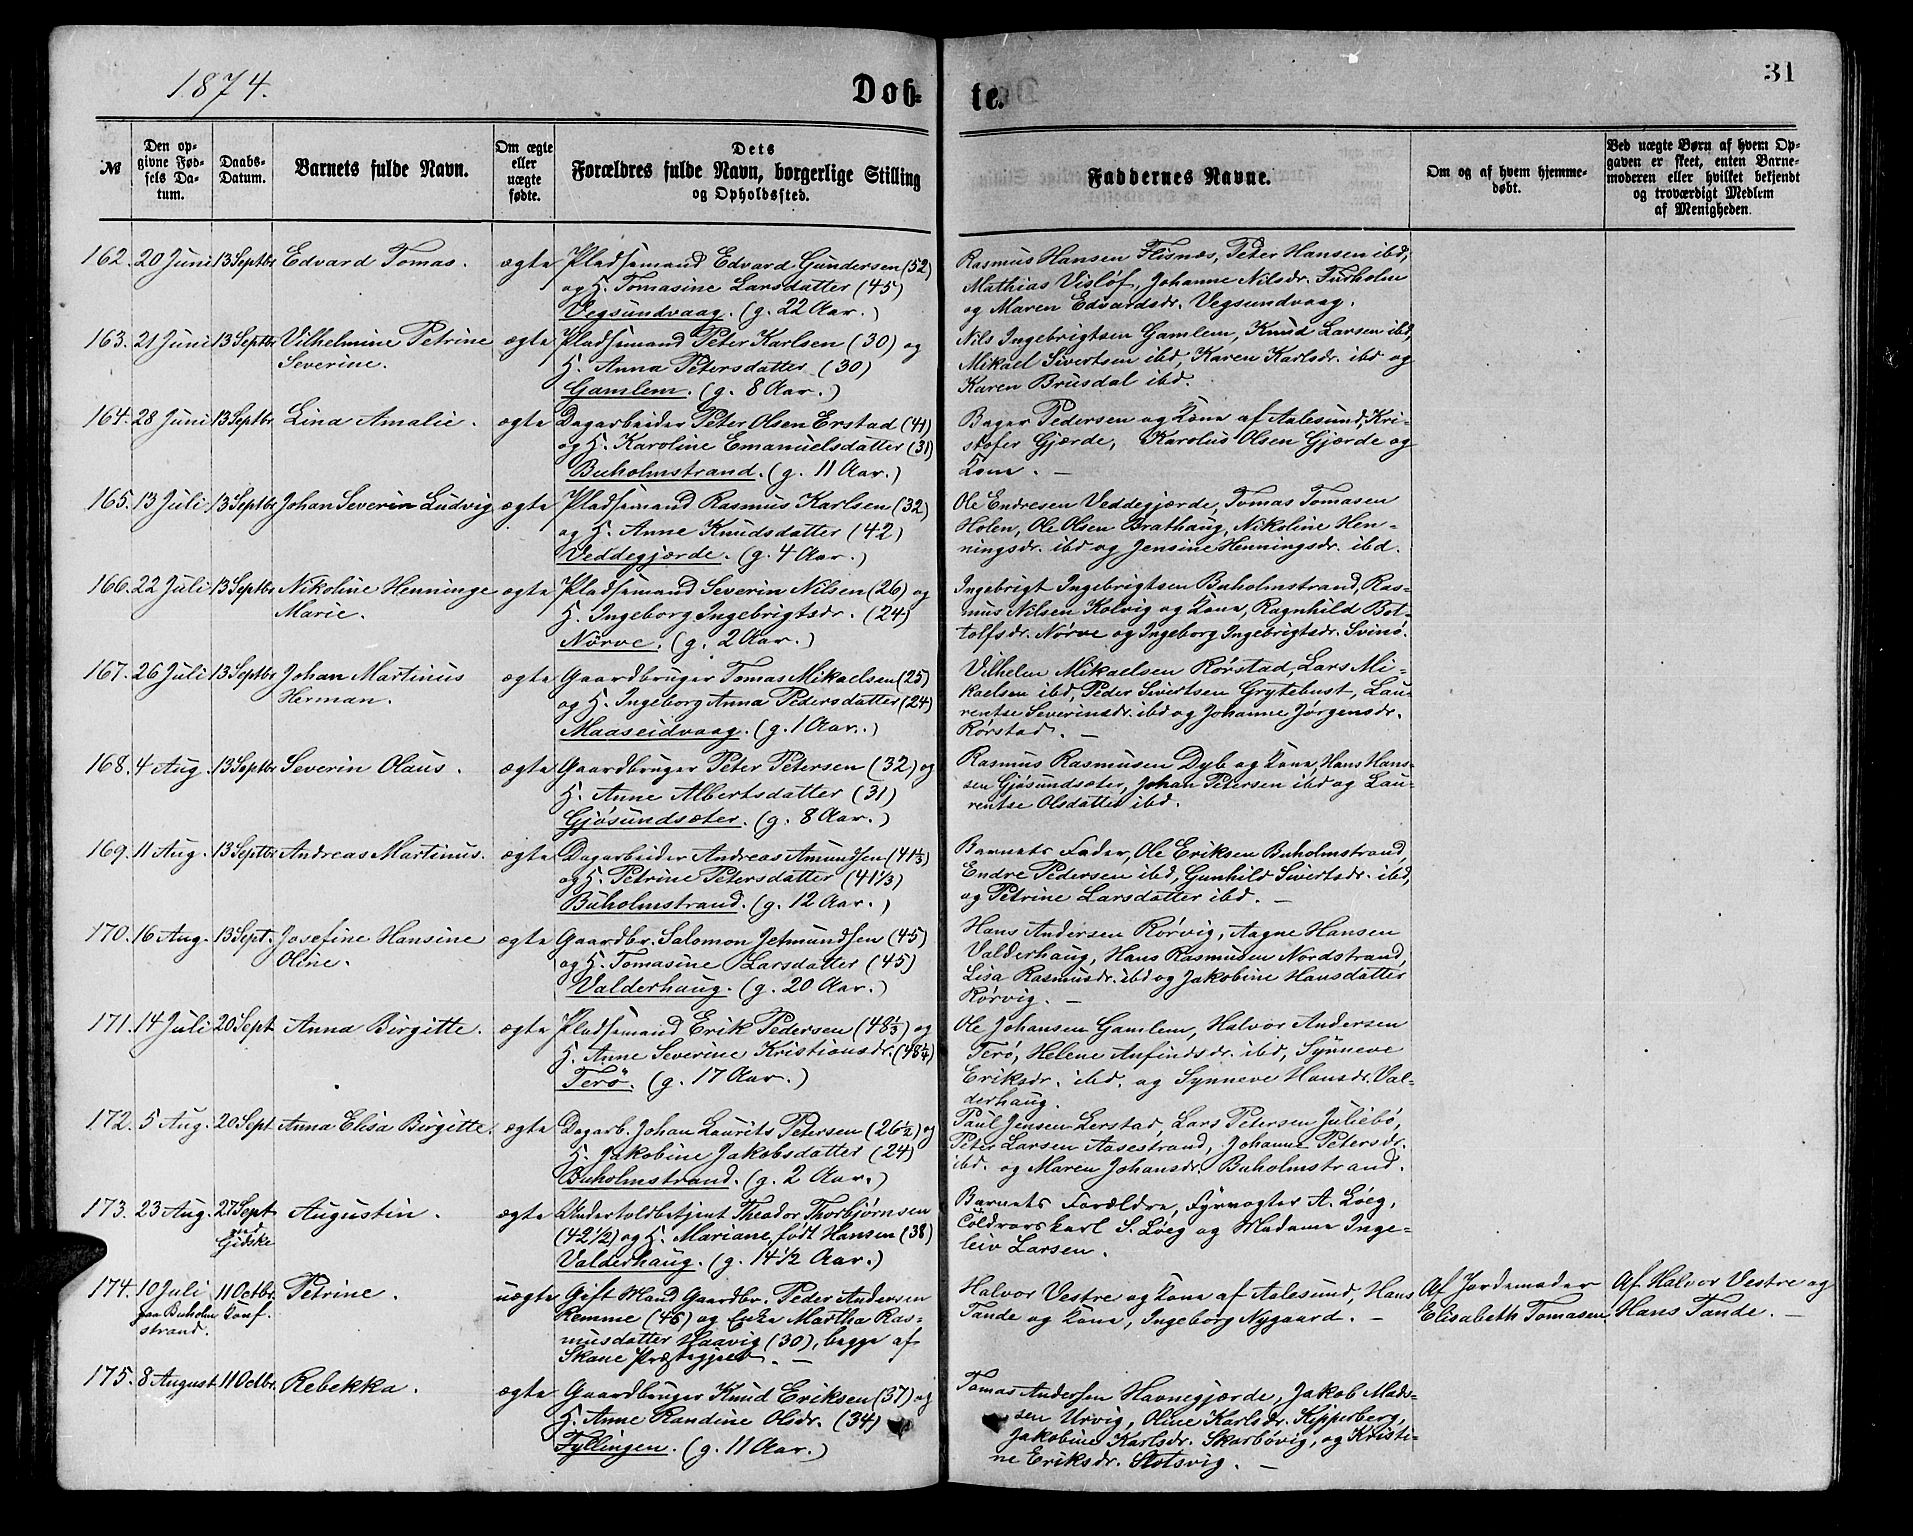 1874.
Døb-
te.
31
№
Den op-
givne Fød-
sels Da-
tum.
Daabs-
Datum.
Barnets fulde Navn.
Om ægte
eller
uægte
fødte.
Dets
Forældres fulde Navn, borgerlige Stilling
og Opholdssted.
Faddernes Navne.
Om og af hvem hjemme-
døbt.
Ved uægte Børn af hvem Op-
gaven er skeet, enten Barne-
moderen eller hvilket bekjendt
og troværdigt Medlem
af Menigheden.
162. 20 Juni 13 Septbr Edvard Tomas. ægte Pladsemand Edvard Gundersen (52)
og H. Tomasine Larsdatter (45)
Vegsundvaag. (g. 22 Aar.)
Rasmus Hansen Flisnæs, Peter Hansen ibd,
Mathias Visløf, Johanne Nilsdr. Furholm
og Maren Edvardsdr. Vegsundvaag.
163. 21 Juni 13 Septbr Vilhelmine Petrine ægte Pladsemand Peter Karlsen (30) og
Severine. H. Anna Petersdatter (30)
Gamlem. (g. 8 Aar.)
Nils Ingebrigtsen Gamlem, Knud Larsen ibd,
Mikael Sivertsen ibd, Karen Karlsdr. ibd og
Karen Brusdal ibd.
164. 28 Juni 13 Septbr Lina Amalie. ægte Dagarbeider Peter Olsen Erstad (41)
og H. Karoline Emanuelsdatter (31)
Buholmstrand. (g. 11 Aar.)
Bager Pedersen og Kone af Aalesund, Kri-
stofer Gjørde, Karolus Olsen Gjørde og
Kone. —
165. 13 Juli 13 Septbr Johan Severin Ludvig ægte Pladsemand Rasmus Karlsen (32)
og H. Anne Knudsdatter (42)
Veddegjærde. (g. 4 Aar.)
Ole Endresen Veddegjærde, Tomas Tomasen
Holen, Ole Olsen Brathaug, Nikoline Hen-
ningsdr. ibd og Jensine Henningsdr. ibd.
166. 22 Juli 13 Septbr Nikoline Henninge ægte Pladsemand Severin Nilsen (26) og
Marie. H. Ingeborg Ingebrigtsdr. (24)
Nørve. (g. 2 Aar.)
Ingebrigt Ingebrigtsen Buholmstrand, Ras-
mus Nilsen Kolvig og Kone, Ragnhild Bot-
tolfsdr. Nørve og Ingeborg Ingebrigtsdr. Svinø.
167. 26 Juli 13 Septbr Johan Martinus ægte Gaardbruger Tomas Mikaelsen (25)
Herman. og H. Ingeborg Anna Pedersdatter (24)
Maaseidvaag. (g. 1 Aar.)
Vilhelm Mikaelsen Rørstad, Lars Mi-
kaelsen ibd, Peder Sivertsen Grytebust, Lau-
rentse Severinsdr. ibd og Johanne Jørgensdr.
Rørstad. —
168. 4 Aug. 13 Septbr Severin Olaus. ægte Gaardbruger Peter Petersen (32) og
H. Anne Albertsdatter (31)
Gjøsundsæter. (g. 8 Aar.)
Rasmus Rasmusen Dyb og Kone, Hans Hans-
sen Gjøsundsæter, Johan Petersen ibd og Lau-
rentse Olsdatter ibd.
169. 11 Aug. 13 Septbr Andreas Martinus. ægte Dagarbeider Andreas Amundsen (41 1/3)
og H. Petrine Petersdatter (41 1/3)
Buholmstrand. (g. 12 Aar.)
Barnets Fader, Ole Eriksen Buholmstrand,
Endre Pedersen ibd, Gunhild Sivertsdr. ibd,
og Petrine Larsdatter ibd. —
170. 16 Aug. 13 Sept. Josefine Hansine ægte Gaardbr. Salomon Jetmundsen (45)
Oline. og H. Tomasine Larsdatter (45)
Valderhaug. (g. 20 Aar.)
Hans Andersen Rørvig, Aagne Hansen
Valderhaug, Hans Rasmusen Nordstrand,
Lisa Rasmusdr. ibd og Jakobine Hansdatter
Rørvig. —
171. 14 Juli 20 Sept Anna Birgitte. ægte Pladsemand Erik Pedersen (48 1/3) og
H. Anne Severine Kristiansdr. (48 1/4)
Terö. (g. 17 Aar.)
Ole Johansen Gamlem, Halvor Andersen
Terø, Helene Anfindsdr. ibd, Synneve
Eriksdr. ibd. og Synneve Hansdr. Val-
derhaug.
172. 5 Aug. 20 Sept Anna Elisa Birgitte. ægte Dagarb. Johan Laurits Petersen (26 1/2) og
H. Jakobine Jakobsdatter (24)
Buholmstrand. (g. 2 Aar.)
Paul Jensen Lerstad, Lars Petersen Juliebø,
Peter Larsen Aasestrand, Johanne Petersdr.
ibd. og Maren Johansdr. Buholmstrand.
173. 23 Aug. 27 Sept Augustin. ægte Undertoldbetjent Theodor Thorbjørnsen
ved (42 1/2) og H. Mariane, født Hansen (38)
Gidske Valderhaug. (g. 14 1/2 Aar.)
Barnets Forældre, Fyrvogter A. Løeg,
Toldrorskarl S. Løeg og Madame Inge-
leiv Larsen.
174. 10 Juli 11 Octbr. Petrine. uægte Gift Mand Gaardbr. Peder Andersen
paa Buholm Konf. Remme (46) og Enke Martha Ras-
strand. musdatter Haavig (30), begge af
Skane Præstegjæld. —
Halvor Vestre og Kone af Aalesund, Hans
Tande og Kone, Ingeborg Nygaard. —
Af Jordemoder
Elisabeth Tomasen,
Af Halvor Vestre og
Hans Tande. —
175. 8 August 11 Octbr. Rebekka. ægte Gaardbruger Knud Eriksen (37) og
H. Anne Randine Olsdr. (34)
Fyllingen. (g. 11 Aar.)
Tomas Andersen Havnegjærde, Jakob Mads-
sen Urvig, Oline Karlsdr. Kipperberg,
Jakobine Karlsdr. Skarbøvig, og Kristi-
ne Eriksdr. Slotsvig. —